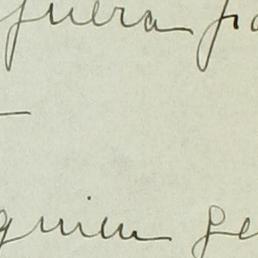 fuera
quien ge